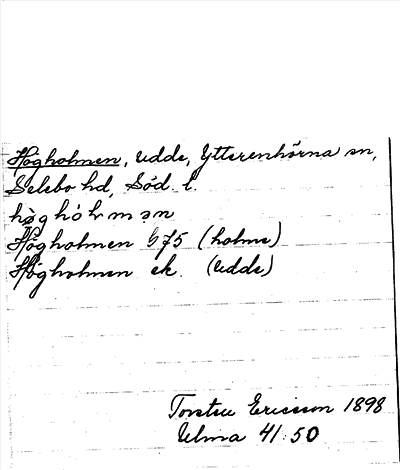 Högholmen, udde, Ytterenhörna sn,
Selebo hd, Söd. l.
hö̀ghólmən
Högholmen G75 (holme)
Högholmen ek. (udde)
Torsten Ericsson 1898
Ulma 41:50